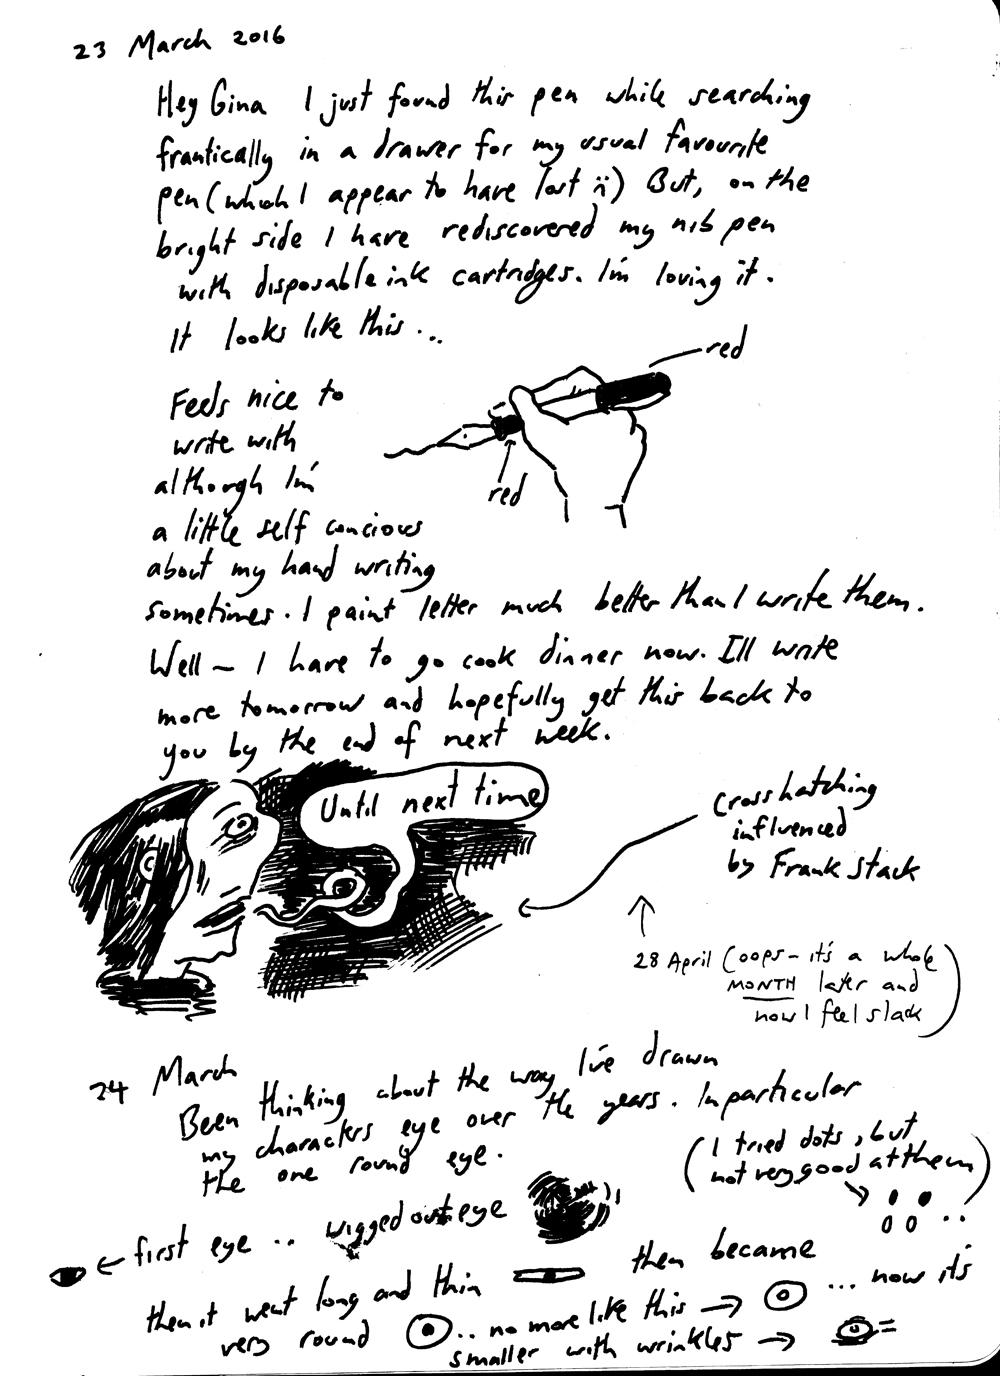 23 March 2016
Hey Gina I just found this pen while searching
frantically in a drawer for my usual favourite
pen (which I appear to have lost ) But, on the
bright side I have rediscovered my nib pen
with disposable ink cartridges. I'm loving it.
It looks like this...
red
Feels nice to
write with
although I'm
red
a little self concious
about my hand writing
sometimes. I paint letter much better than I write them.
Well ~ I have to go cook dinner now. I'll write
more tomorrow and hopefully get this back to
you by the end of next week.
Until next time
Cross hatching
influenced
by Frank Stack
28 April (oops - it's a whole
MONTH later and
now I feel slack)
24 March
Been thinking about the way I've drawn
my characters eye over the years. In particular
the one round eye.
(I tried dots, but
not very good at them)
← first eye .. wigged out eye
then it went long and thin
then became
very round
.. no more like this → ... now it's
smaller with wrinkles →